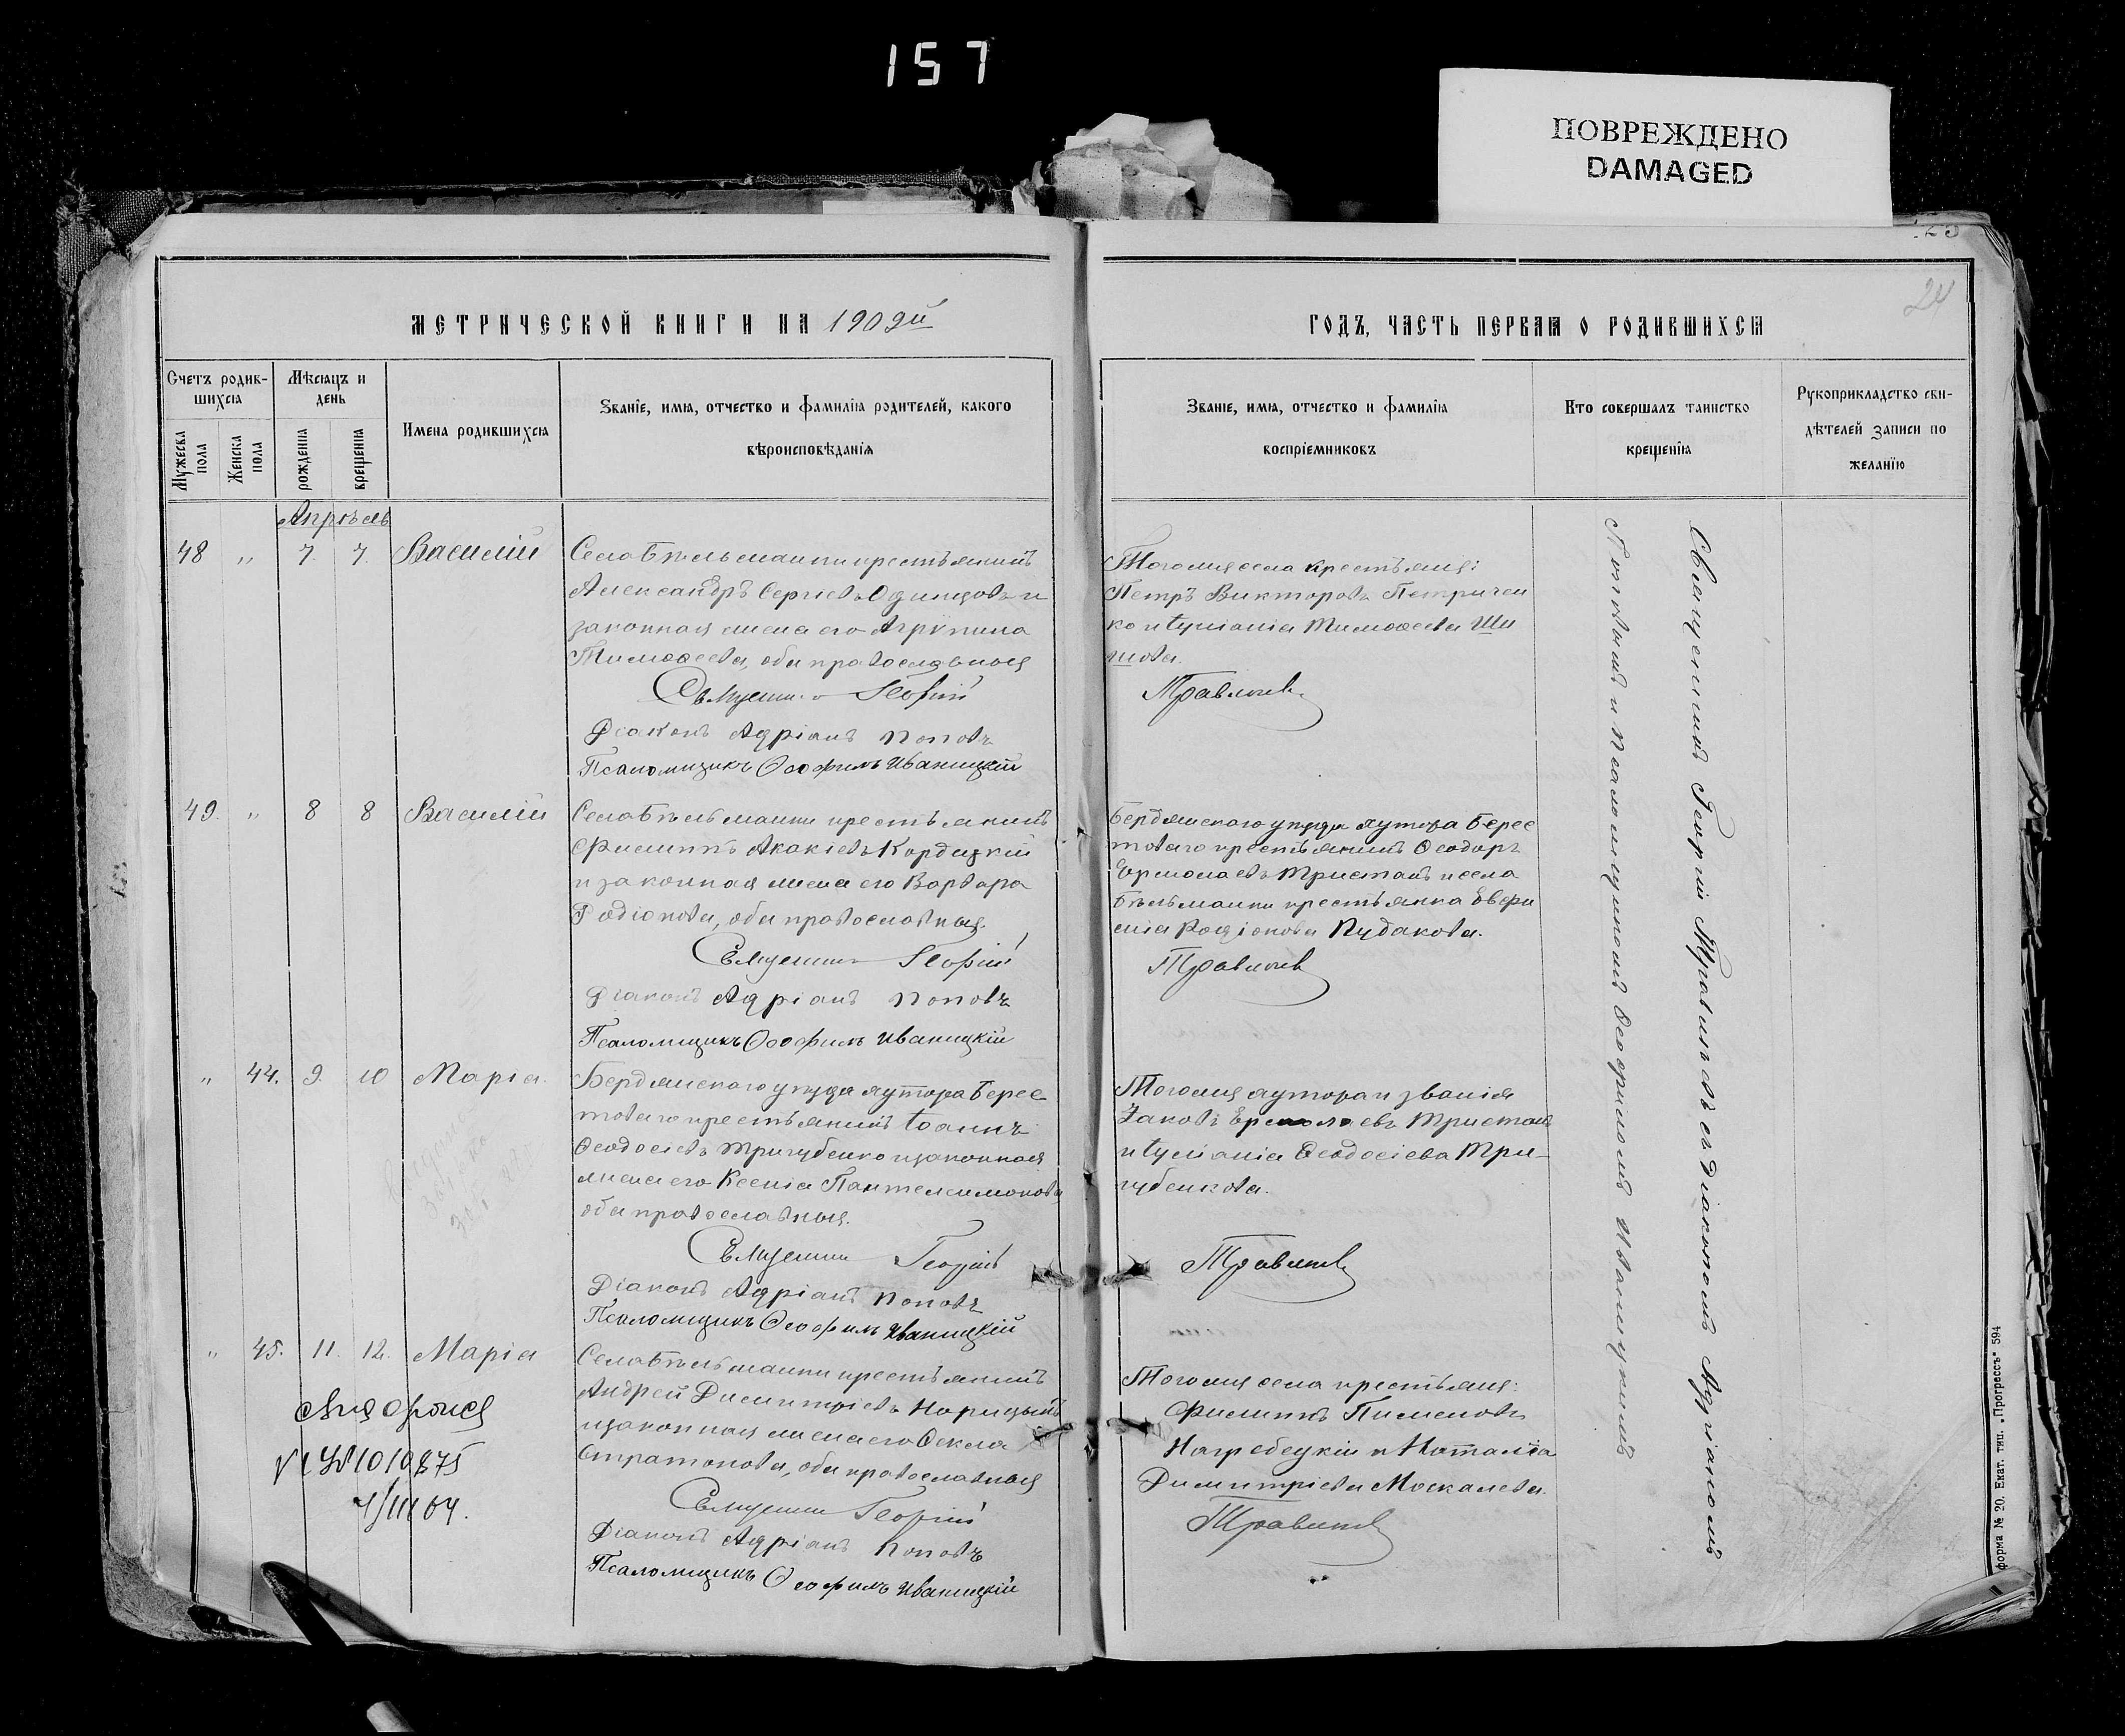 157
ПОВРЕЖДЕНО
DAMAGED
24
МЕТРИЧЕСКОЙ КНИГИ НА 1909й
ГОДЪ, ЧАСТЬ ПЕРВАЯ О РОДИВШИХСЯ
Счетъ родив-
шихся
Мужеска пола
Женска пола
Мѣсяцъ и
день
рожденія
крещенія
Имена родившихся
Званіе, имя, отчество и фамилія родителей, какого
вѣроисповѣданія
Званіе, имя, отчество и фамилія
воспріемниковъ
Кто совершалъ таинство
крещенія
Рукоприкладство сви-
дѣтелей записи по
желанію
Апрѣль
48 " 7. 7. Василій
Села Бѣльманки крестьянинъ
Александръ Сергіевъ Одинцовъ и
законная жена его Агрипина
Тимоѳеева, оба православныя
Священникъ Георгій
Діаконъ Адріанъ Поповъ
Псаломщикъ Ѳеофилъ Иваницкій
Тогоже села крестьяне:
Петръ Викторовъ Петричен
ко и Іуліанія Тимоѳеева Ши
шова.
Травлевъ
49. " 8 8 Василій
Села Бѣльманки крестьянинъ
Филиппъ Акакіевъ Кордицкій
и законная жена его Варвара
Родіонова, оба православныя.
Священникъ Георгій
Діаконъ Адріанъ Поповъ
Псаломщикъ Ѳеофилъ Иваницкій
Бердянскаго уѣзда хутора Берес
товаго крестьянинъ Ѳеодоръ
Ермолаевъ Тристанъ и села
Бѣльманки крестьянка Евфи
мія Родіонова Кудакова.
" 44. 9. 10 Марія.
Бердянскаго уѣзда хутора Берес
товаго крестьянинъ Іоаннъ
Ѳеодосіевъ Тригубенко и законная
жена его Ксенія Пантелеимонова
оба православныя.
Священникъ Георгій
Діаконъ Адріанъ Поповъ
Псаломщикъ Ѳеофилъ Иваницкій
Тогоже хутора и званія
Іаковъ Ермолаевъ Тристанъ
и Іуліанія Ѳеодосіева Три-
губенкова.
" 45. 11. 12. Марія
Села Бѣльманки крестьянинъ
Андрей Димитріевъ
и законная жена его Ѳекла
Стратонова, оба православныя
Священникъ Георгій
Діаконъ Адріанъ Поповъ
Псаломщикъ Ѳеофилъ Иваницкій
Тогоже села крестьяне:
Филиппъ Пименовъ
Нагребецкій и Наталія
Димитріева Москалева.
1010875
Священникъ Георгій съ Діакономъ Адріаномъ
Поповымъ и Псаломщикомъ Ѳеофиломъ Иваницкимъ
форма № 20. Екат. тип. „Прогрессъ" 594